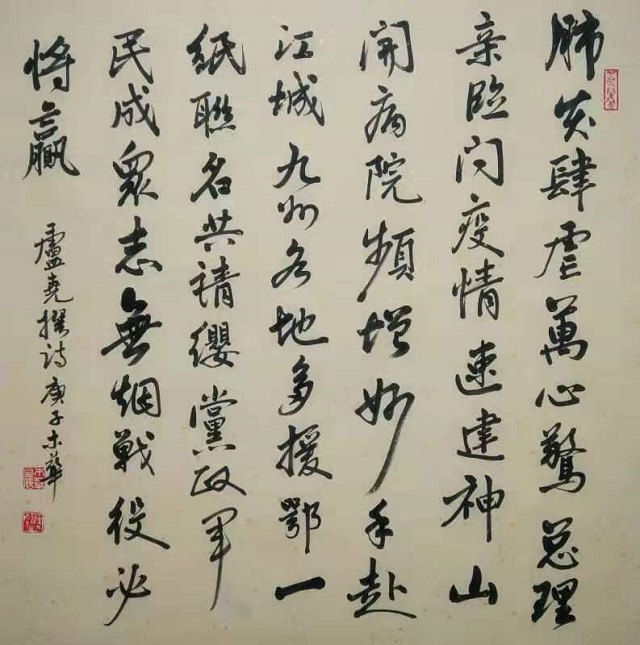 肺炎肆虐萬心驚总理
亲臨问疫情速建神山
開病院頻增妙手赴
江城九州各地多援鄂一
紙聯名共請纓黨政军
民成眾志無烟戰役必
将贏
盧堯撰诗庚子木華